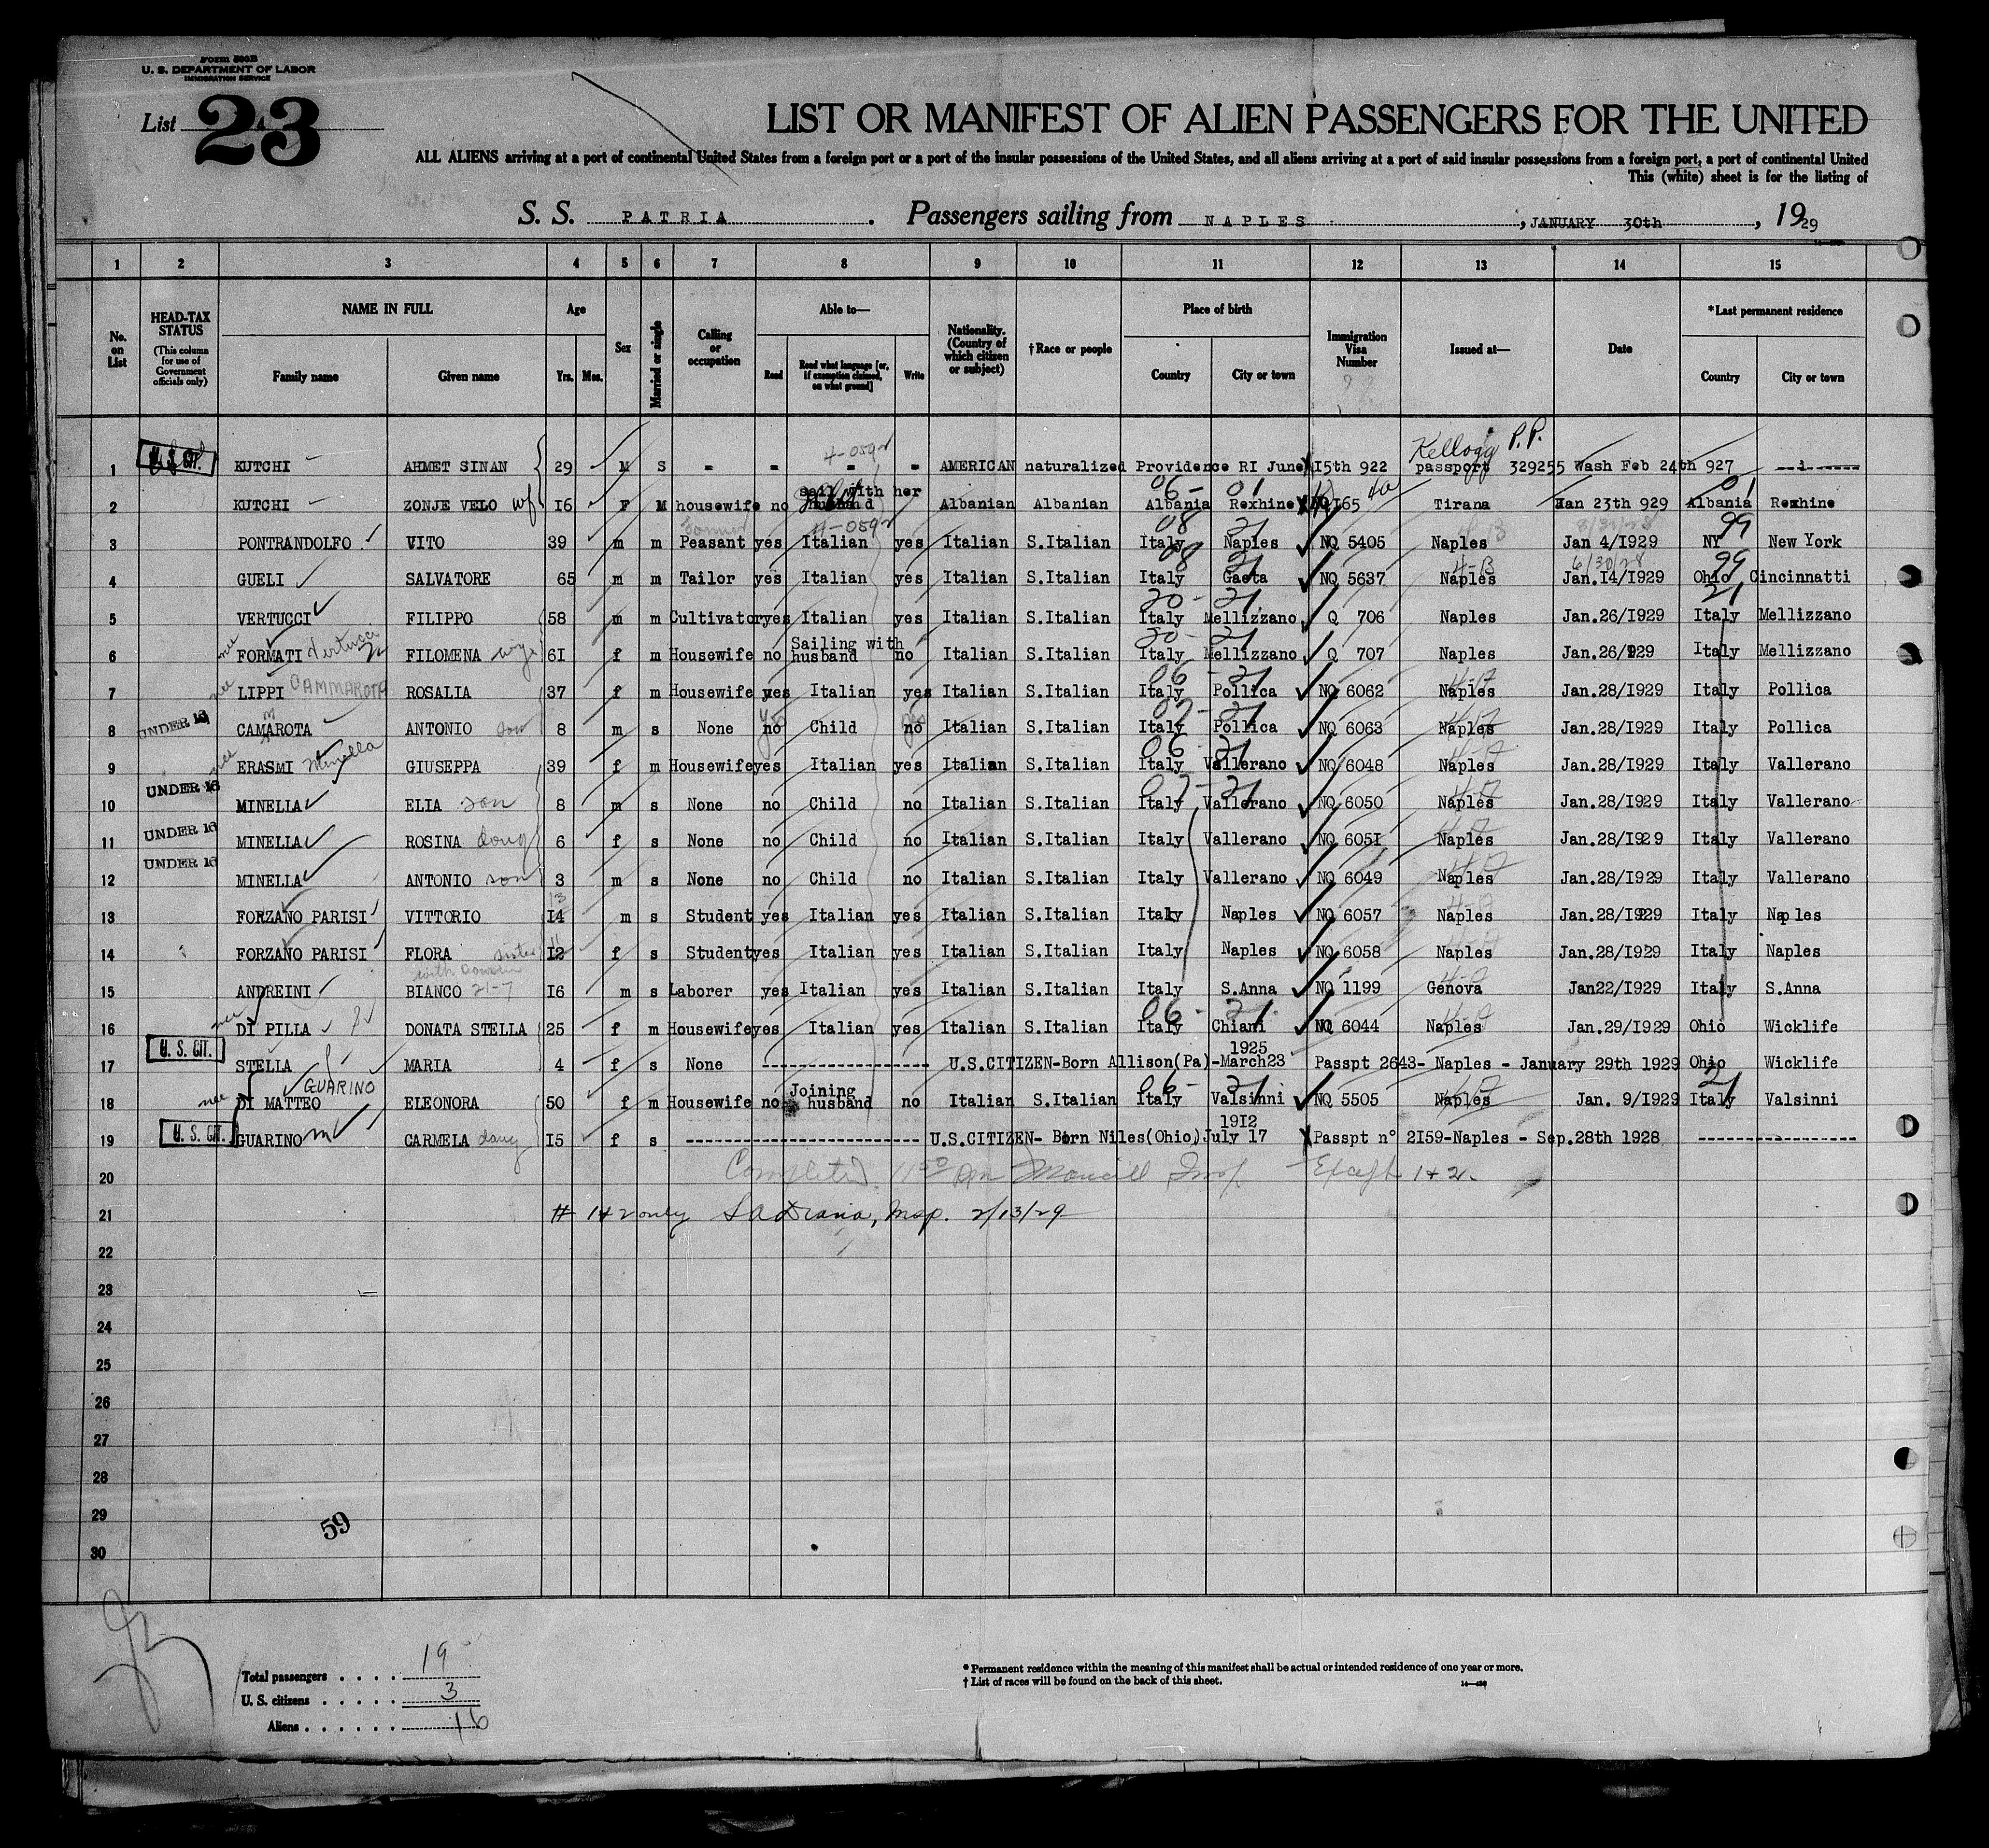 Form 500B
U. S. DEPARTMENT OF LABOR
IMMIGRATION SERVICE
List 23
LIST OR MANIFEST OF ALIEN PASSENGERS FOR THE UNITED
ALL ALIENS arriving at a port of continental United States from a foreign port or a port of the insular possessions of the United States, and all aliens arriving at a port of said insular possessions from a foreign port, a port of continental United
This (white) sheet is for the listing of
S. S. PATRIA. Passengers sailing from NAPLES, JANUARY 30th, 1929
1 2 3 4 5 6 7 8 9 10 11 12 13 14 15
No. on List
HEAD-TAX STATUS
(This column for use of Government officials only)
NAME IN FULL
Family name Given name
Age
Yrs. Mos.
Sex
Married or single
Calling or occupation
Able to—
Read Read what language [or, if exemption claimed, on what ground] Write
Nationality. (Country of which citizen or subject)
†Race or people
Place of birth
Country City or town
Immigration Visa Number
Issued at—
Date
*Last permanent residence
Country City or town
4-059
Kellogg P.P.
1 U.S. CIT. KUTCHI AHMET SINAN 29 M S - - - - AMERICAN naturalized Providence RI June I5th 922 passport 329255 Wash Feb 24th 927
sail with her
06- 01 01
2 KUTCHI ZONJE VELO wf I6 F M housewife no husband Albanian Albanian Albania Rexhine NQ I65 Tirana Jan 23th 929 Albania Rexhine
08 21 99
3 PONTRANDOLFO VITO 39 m m Peasant yes Italian yes Italian S.Italian Italy Naples NQ 5405 Naples Jan 4/I929 NY New York
08 21 4-13 6/30/28 99
4 GUELI SALVATORE 65 m m Tailor yes Italian yes Italian S.Italian Italy Gaeta NQ 5637 Naples Jan.I4/I929 Ohio Cincinnatti
20- 21 21
5 VERTUCCI FILIPPO 58 m m Cultivator yes Italian yes Italian S.Italian Italy Mellizzano Q 706 Naples Jan.26/I929 Italy Mellizzano
nee Vertucci Sailing with 20- 21
6 FORMATI FILOMENA wife 6I f m Housewife no husband no Italian S.Italian Italy Mellizzano Q 707 Naples Jan.26/I929 Italy Mellizzano
nee CAMMAROTA 06- 21 4-17
7 LIPPI ROSALIA 37 f m Housewife yes Italian yes Italian S.Italian Italy Pollica NQ 6062 Naples Jan.28/I929 Italy Pollica
UNDER 16 m yes yes 07- 21
8 CAMAROTA ANTONIO son 8 m s None no Child no Italian S.Italian Italy Pollica NQ 6063 Naples Jan.28/I929 Italy Pollica
nee Minella 06- 21
9 ERASMI GIUSEPPA 39 f m Housewife yes Italian yes Italian S.Italian Italy Vallerano NQ 6048 Naples Jan.28/I929 Italy Vallerano
UNDER 16 07- 21
10 MINELLA ELIA son 8 m s None no Child no Italian S.Italian Italy Vallerano NQ 6050 Naples Jan.28/I929 Italy Vallerano
UNDER 16
11 MINELLA ROSINA daug 6 f s None no Child no Italian S.Italian Italy Vallerano NQ 605I Naples Jan.28/I929 Italy Vallerano
UNDER 16
12 MINELLA ANTONIO son 3 m s None no Child no Italian S.Italian Italy Vallerano NQ 6049 Naples Jan.28/I929 Italy Vallerano
13
13 FORZANO PARISI VITTORIO I4 m s Student yes Italian yes Italian S.Italian Italy Naples NQ 6057 Naples Jan.28/I929 Italy Naples
14 FORZANO PARISI FLORA sister I2 f s Student yes Italian yes Italian S.Italian Italy Naples NQ 6058 Naples Jan.28/I929 Italy Naples
with cousin
15 ANDREINI BIANCO 21-7 I6 m s Laborer yes Italian yes Italian S.Italian Italy S.Anna NQ 1199 Genova Jan22/I929 Italy S.Anna
nee 06- 21
16 DI PILLA DONATA STELLA 25 f m Housewife yes Italian yes Italian S.Italian Italy Chiani NQ 6044 Naples Jan.29/I929 Ohio Wicklife
U. S. CIT. 1925
17 STELLA MARIA 4 f s None U.S.CITIZEN-Born Allison(Pa)-March23 Passpt 2643- Naples - January 29th 1929 Ohio Wicklife
nee GUARINO Joining 06- 21 21
18 DI MATTEO ELEONORA 50 f m Housewife no husband no Italian S.Italian Italy Valsinni NQ 5505 Naples Jan. 9/I929 Italy Valsinni
U. S. CIT. I9I2
19 GUARINO CARMELA daug I5 f s U.S.CITIZEN- Born Niles(Ohio)July 17 Passpt n° 2I59-Naples - Sep.28th 1928
20 Completed Insp. Except 1+2.
21 # 1+2 only Insp. 2/13/29
22
23
24
25
26
27
28
29
30
59
Total passengers . . . . 19
U. S. citizens . . . . . 3
Aliens . . . . . . 16
* Permanent residence within the meaning of this manifest shall be actual or intended residence of one year or more.
† List of races will be found on the back of this sheet.